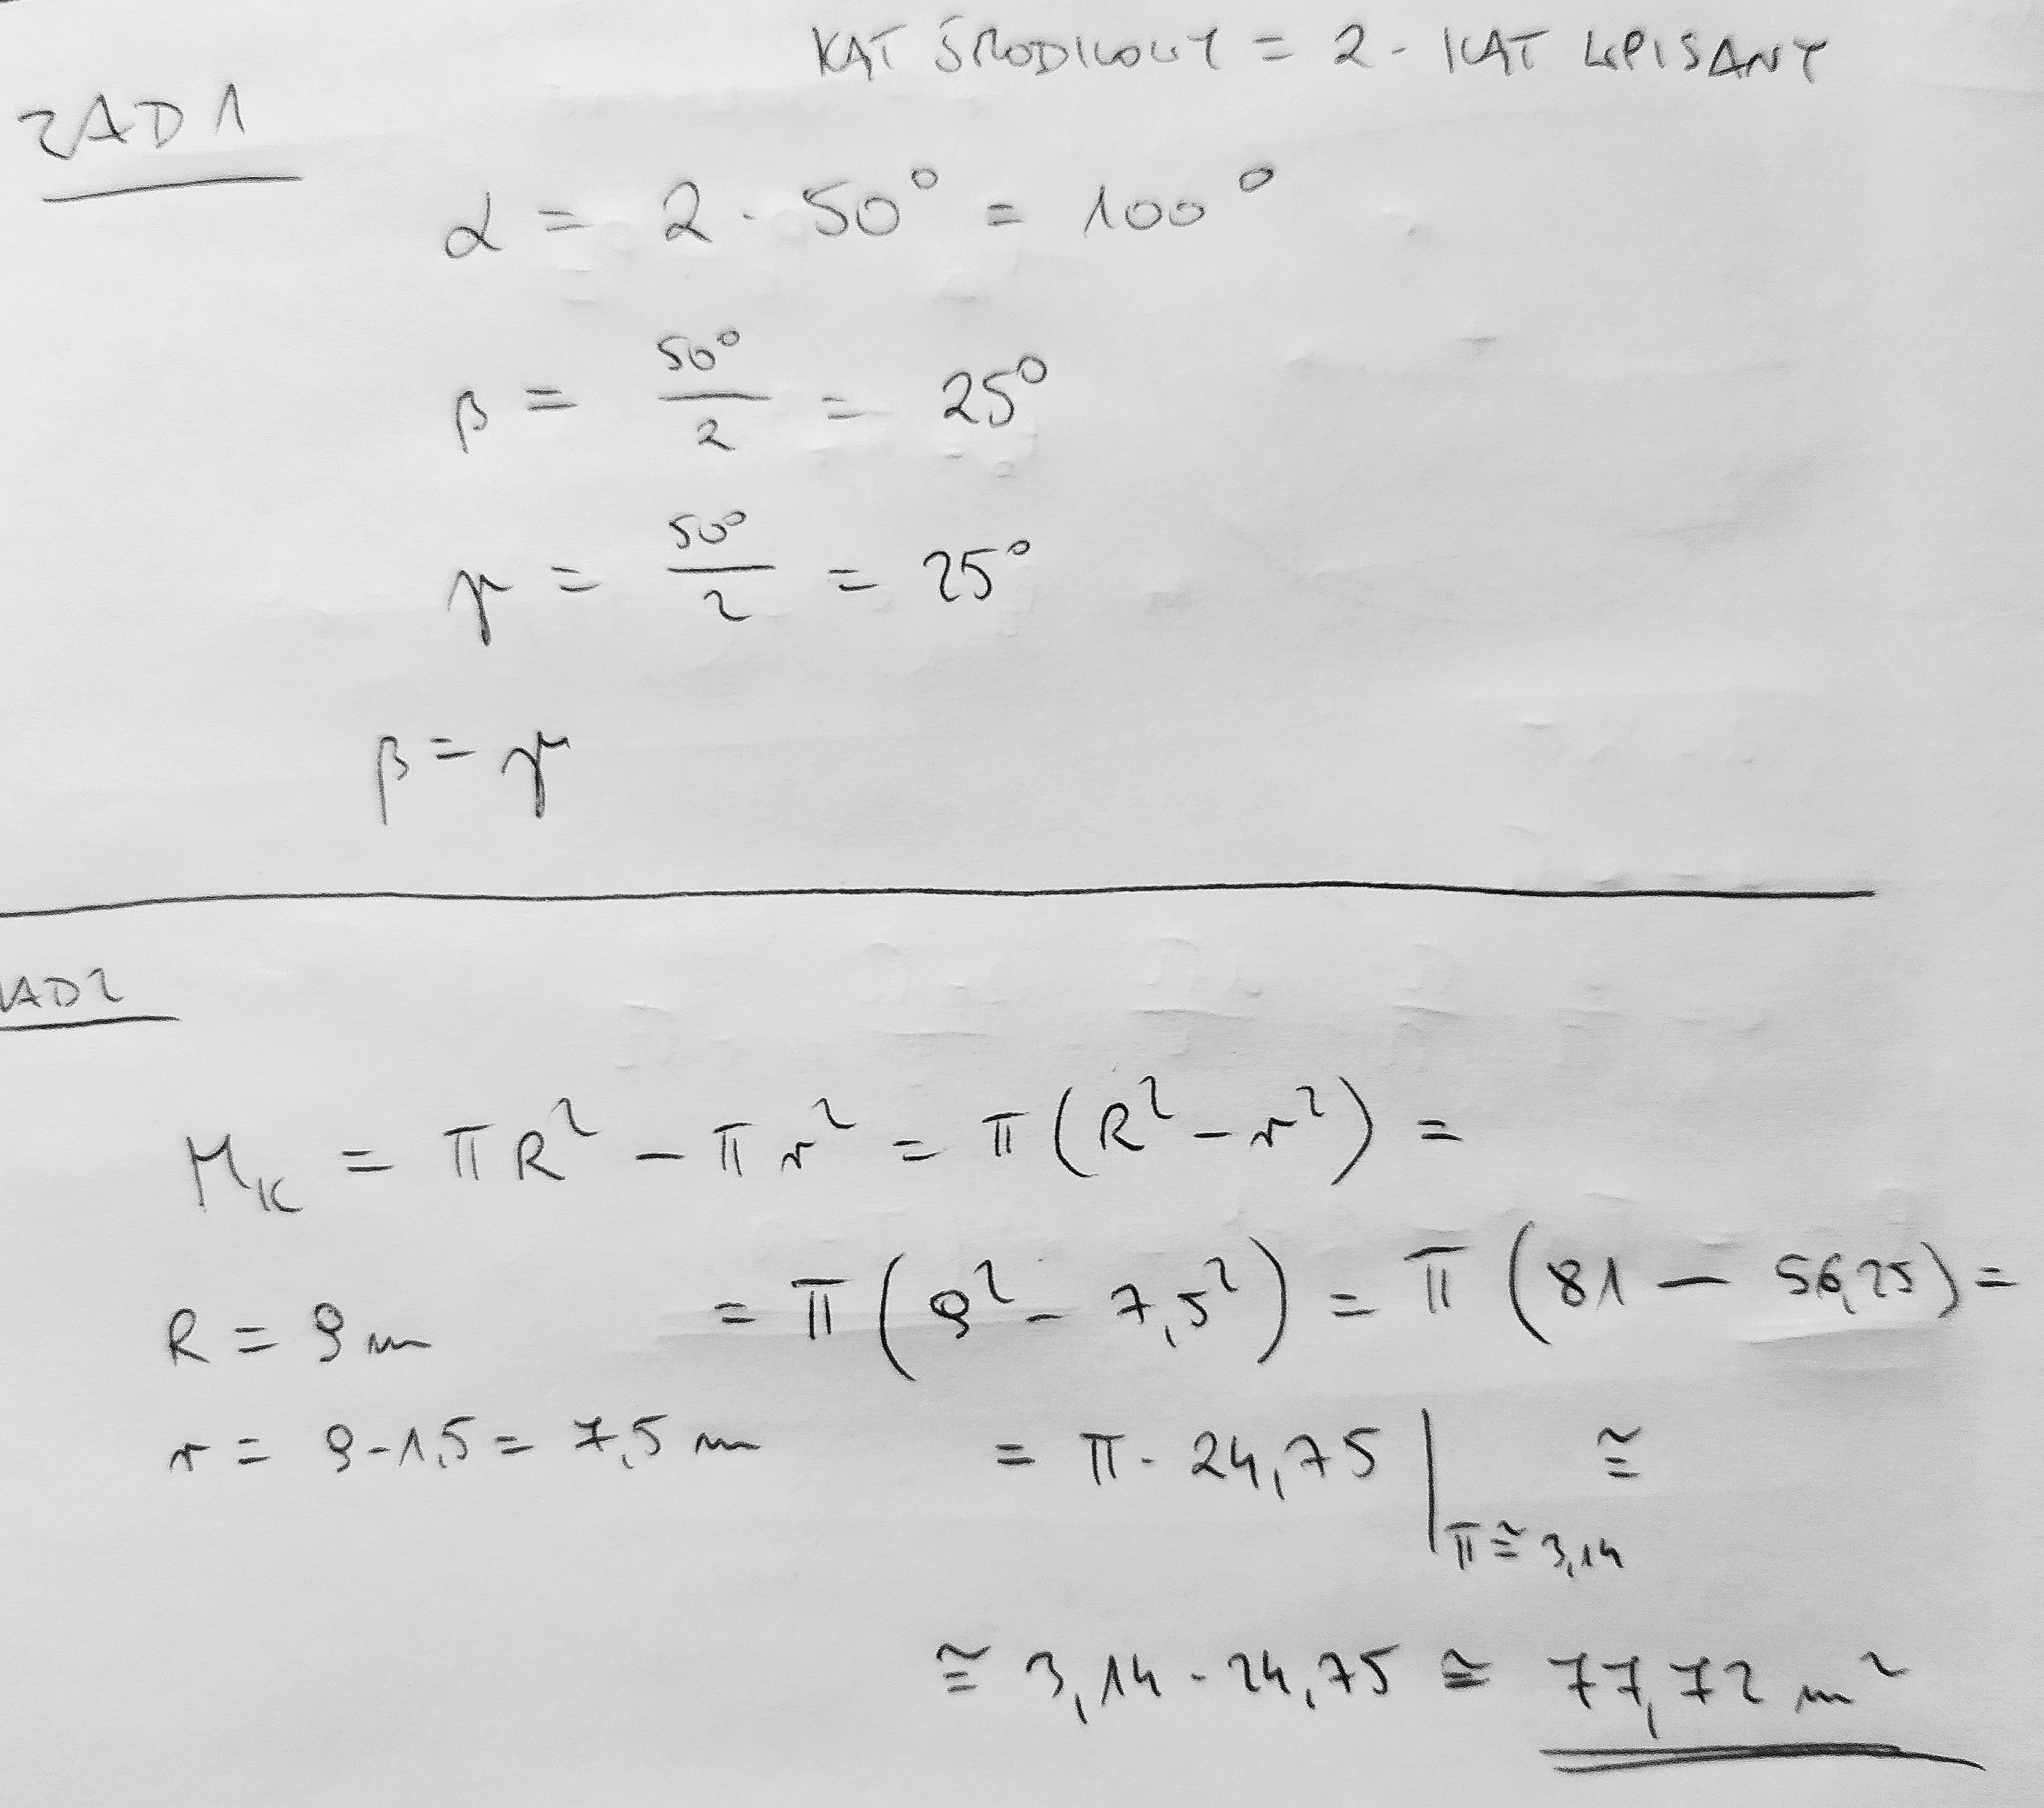 KĄT ŚRODKOWY = 2 · KĄT WPISANY
ZAD 1
α = 2 · 50° = 100°
β = 50°/2 = 25°
γ = 50°/2 = 25°
β = γ
ZAD2
M_K = πR² - πr² = π(R² - r²) =
R = 9m = π(9² - 7,5²) = π(81 - 56,25) =
r = 9-1,5 = 7,5 m = π · 24,75 | π≅3,14 ≅
≅ 3,14 · 24,75 ≅ 77,72 m²